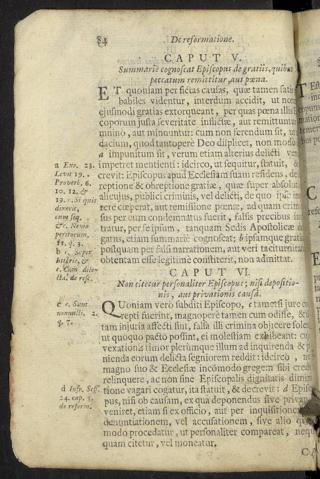 84 De reformatione.
CAPUT V.
Summariè cognoscat Episcopus de gratiis, quibus
peccatum remittitur, aut pœna.
ET quoniam per fictas causas, quæ tamen satis
babiles videntur, interdum accidit, ut non
ejusmodi gratias extorqueant, per quas pœnæ illis
coporum justa severitate inflictæ, aut remittuntur
mnino, aut minuuntur: cum non ferendum sit, ut
dacium, quod tantopere Deo displicet, non modo
a impunitum sit, verum etiam alterius delicti
impetret mentienti: idcirco, ut sequitur, statuit, &
crevit: Episcopus apud Ecclesiam suam residens, de
reptione & obreptione gratiæ, quæ super absolut
alicujus publici criminis, vel delicti, de quo ipse in
rere cœperat, aut remissione pœnæ, ad quam crim
sus per eum condemnatus fuerit, falsis precibus im
tratur, per se ipsum, tanquam Sedis Apostolicæ d
gatus, etiam summariè cognoscat; & ipsamque gratia
postquam per falsi narrationem, aut veri taciturnitat
obtentam esse legitimè constiterit, non admittat.
CAPUT VI.
Non citetur personaliter Episcopus; nisi depositio-
nis, aut privationis causâ.
QUoniam vero subditi Episcopo, c tametsi jure co
repti fuerint, magnopere tamen eum odisse, &
tam injuria affecti sint, falsa illi crimina objicere solent
ut quoquo pacto possint, ei molestiam exhibeant: cu
vexationis timor plerumque illum ad inquirenda & p
nienda eorum delicta segniorem reddit: idcirco, ne
magno suo & Ecclesiæ incommodo gregem sibi cred
relinquere, ac non sine Episcopalis dignitatis diminu
tione vagari cogatur, ita statuit, & decrevit: d Episc
pus, nisi ob causam, ex qua deponendus sive priva
veniret, etiam si ex officio, aut per inquisitionem
denuntiationem, vel accusationem, sive alio qu
modo procedatur, ut personaliter compareat, nequ
quam citetur, vel moneatur.
a Exo. 23.
Levit 19.
Proverb. 6.
10. 12. &
19.
c c. Sunt
nonnulli, 2.
q. 7.
d Infr. Sess.
24. cap. 5.
de reform.